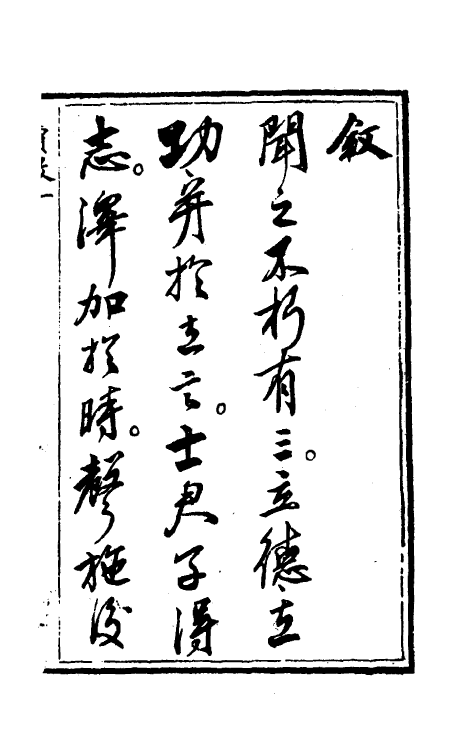 敘
聞之不朽有三。立德立
功并於立言。士君子得
志。澤加於時。聲施後